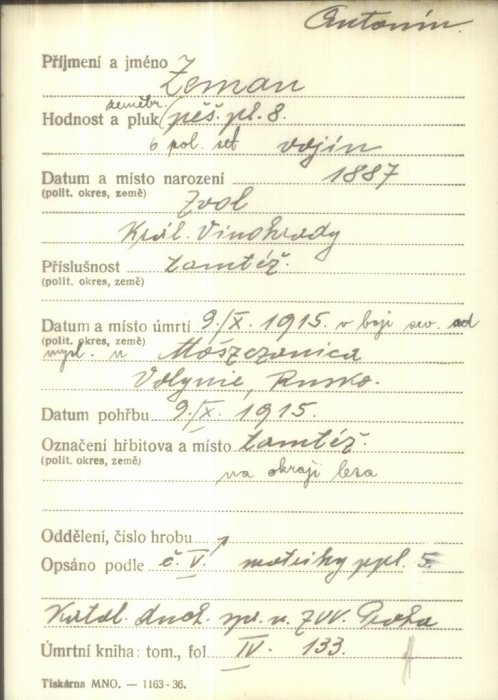 Antonín.
Příjmení a jméno Zeman
zeměbr.
Hodnost a pluk pěš. pl. 8.
6 pol. set vojín
Datum a místo narození 1887
(polit. okres, země) Zvol
Král. Vinohrady
Příslušnost tamtéž.
(polit. okres, země)
Datum a místo úmrtí 9./X. 1915. v boji sev. od
(polit. okres, země)
u Moszczanica
Volynie, Rusko.
Datum pohřbu 9./X. 1915.
Označení hřbitova a místo tamtéž.
(polit. okres, země) na okraji lesa
Oddělení, číslo hrobu
Opsáno podle č. V. matriky ppl. 5
Katol. duch. spr. u ZVV. Praha
Úmrtní kniha: tom., fol. IV. 133.
Tiskárna MNO. — 1163-36.